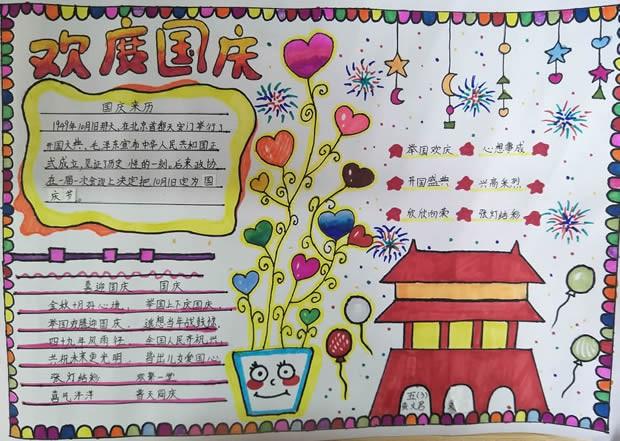 欢度国庆
国庆来历
1949年10月1日那天,在北京首都天安门举行了
开国大典,毛泽东宣布中华人民共和国正
式成立,见证了历史性的一刻。后来政协
在一届一次会议上决定把10月1日定为国
庆节。
举国欢庆 心想事成
开国盛典 兴高采烈
欣欣向荣 张灯结彩
喜迎国庆 国庆
金秋十月好心境, 举国上下庆国庆
举国欢腾迎国庆, 遥想当年战鼓
四十九年风雨 全国人民齐
共祝未来更光明, 儿女爱国心
张灯结彩 欢聚一堂
喜气洋洋 普天同庆
五(3)